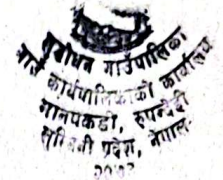 शुद्धोधन गाउँपालिका
गाउँ कार्यपालिकाको कार्यालय
मानपकडी, रुपन्देही
लुम्बिनी प्रदेश, नेपाल
२०७३